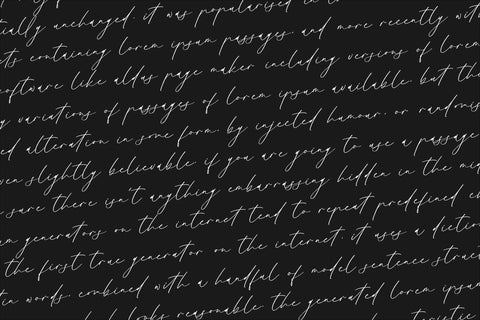 tially unchanged. it was popularised in
ts containing lorem ipsum passages, and more recently with
software like aldus page maker including versions of lorem
y variations of passages of lorem ipsum available, but the
ed alteration in some form, by injected humour, or randomis
ven slightly believable. if you are going to use a passage
sure there isn't anything embarrassing hidden in the mid
um generators on the internet tend to repeat predefined
the first true generator on the internet. it uses a diction
tin words, combined with a handful of model sentence struct
looks reasonable. the generated lorem ipsum